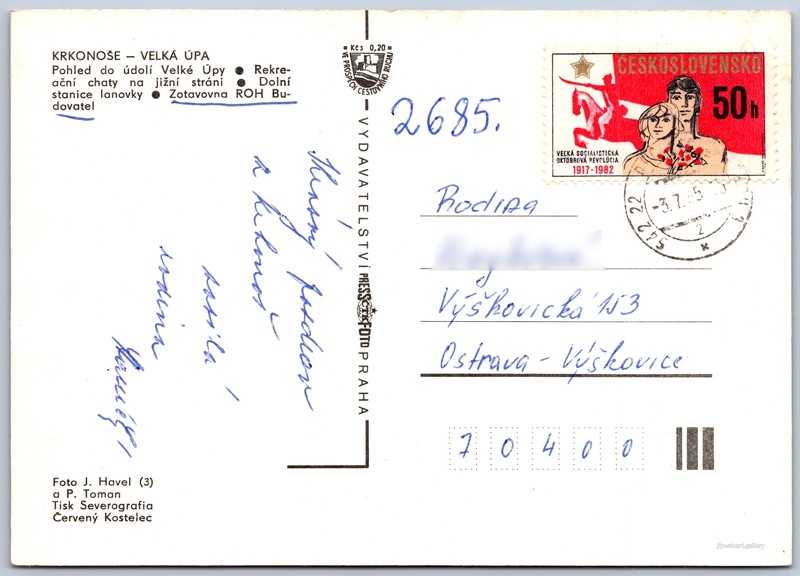 KRKONOŠE – VELKÁ ÚPA
Pohled do údolí Velké Úpy ● Rekre-
ační chaty na jižní stráni ● Dolní
stanice lanovky ● Zotavovna ROH Bu-
dovatel
Kčs 0,20
VE PROSPĚCH CESTOVNÍHO RUCHU
VYDAVATELSTVÍ PRESSFOTO PRAHA
ČTK
2685.
pozdrav
z Krkonoš
posílá
rodina
ČESKOSLOVENSKO
50h
VEĽKÁ SOCIALISTICKÁ
OKTÓBROVÁ REVOLÚCIA
1917-1982
542 22
-3.7.
2
Rodina
Výškovická 153
Ostrava - Výškovice
7 0 4 0 0
Foto J. Havel (3)
a P. Toman
Tisk Severografia
Červený Kostelec